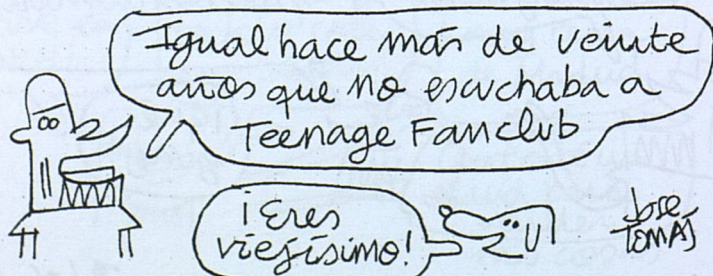 Igual hace más de veinte
años que no escuchaba a
Teenage Fanclub
¡Eres
viejísimo!
José
TOMÁS